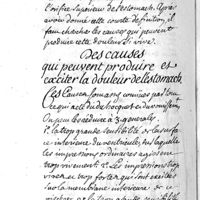 l'orifice superieur de l'estomach. Apres
avoir donné cette courte definition, il
faut chercher les causes qui peuvent
produire cette douleur si vive.
Des causes
qui peuvent produire et
exciter la douleur de l'estomach.
Ces causes sont comprises par tout
ce qui a été dit du hoquet et du vomissement
On peut les reduire à 3 generalles
la trop grande sensibilité de la surface
interieure du ventricule, sur laquelle
les impressions ordinaires agissent
trop vivement. 2° Les impressions trop
vives ou trop fortes qui sont faites
sur la membrane interieure de ce